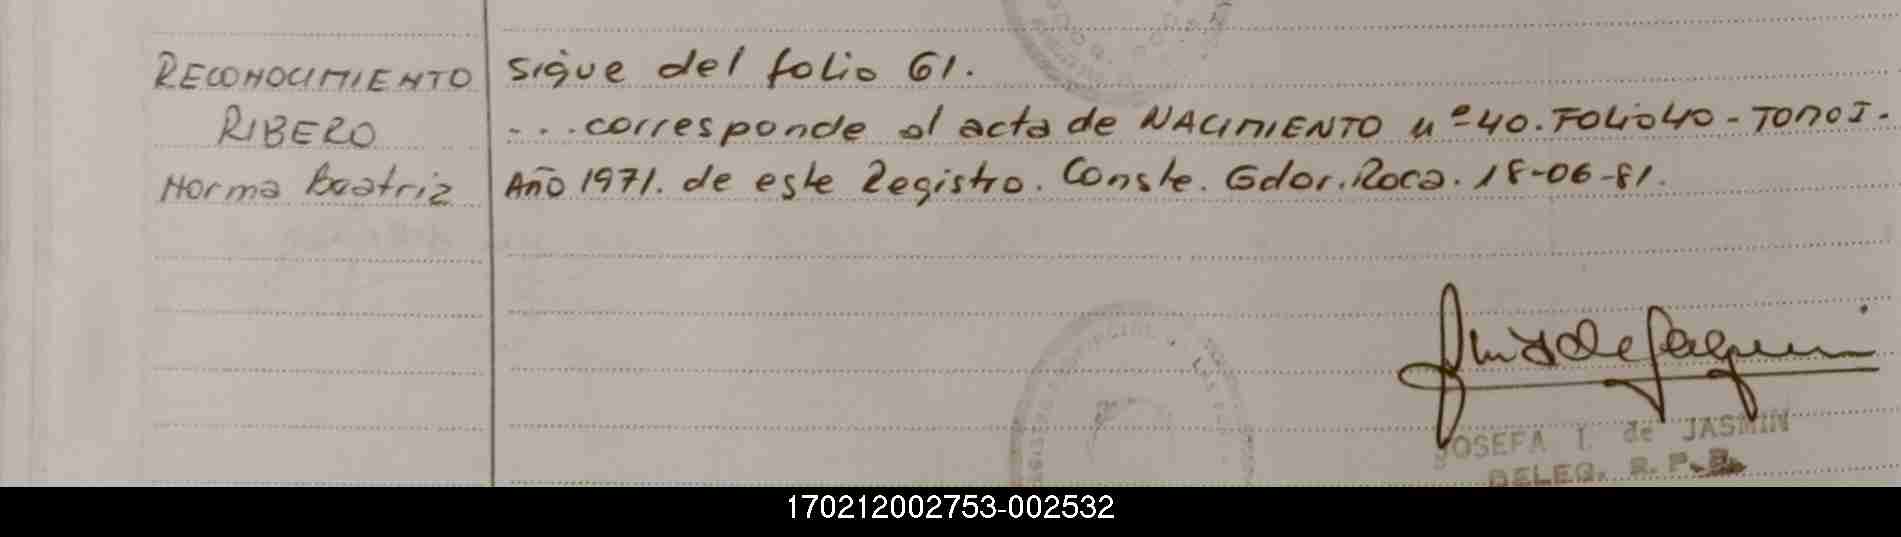 RECONOCIMIENTO
RIBERO
Norma Beatriz
sigue del folio 61.
...corresponde al acta de NACIMIENTO nº 40. FOLIO 40 - TOMO I.
Año 1971. de este Registro. Conste. Gdor. Roca. 18-06-81.
JOSEFA I. de JASMIN
DELEG. R. P.
170212002753-002532